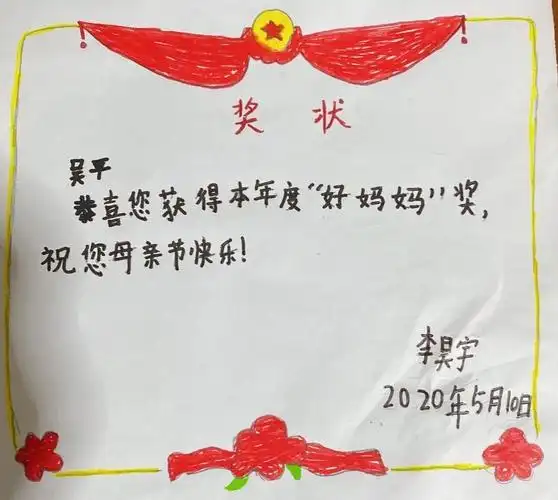 奖状
吴平
恭喜您获得本年度“好妈妈”奖，
祝您母亲节快乐！
李昊宇
2020年5月10日